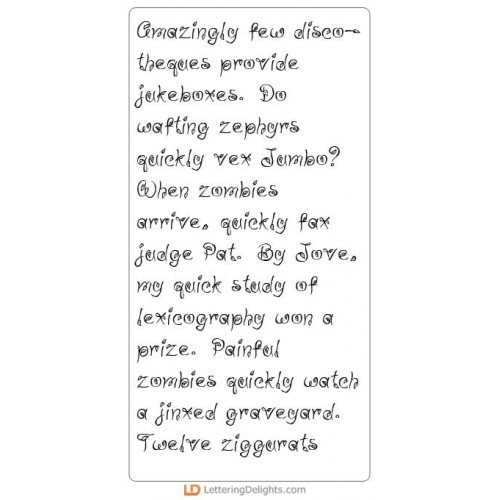 Amazingly few disco-
theques provide
jukeboxes. Do
wafting zephyrs
quickly vex Jumbo?
When zombies
arrive, quickly fax
judge Pat. By Jove,
my quick study of
lexicography won a
prize. Painful
zombies quickly watch
a jinxed graveyard.
Twelve ziggurats
LD LetteringDelights.com